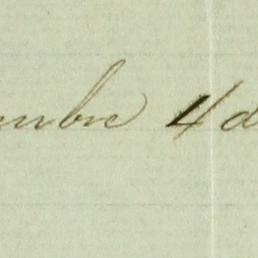 mbre 4 d